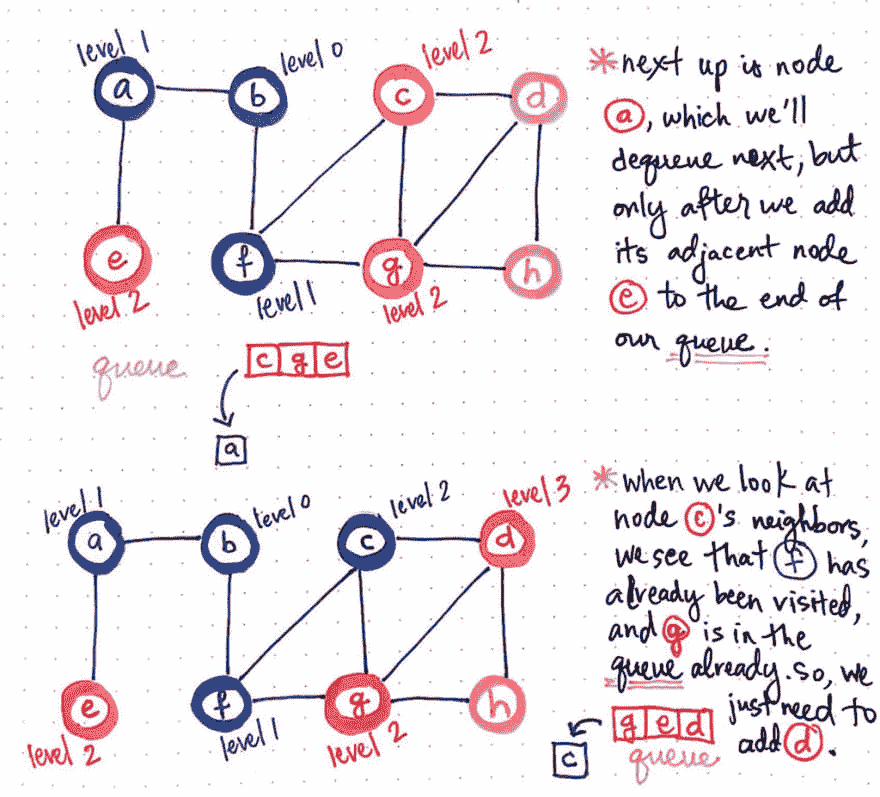 level 1
level 0
level 2
a
b
c
d
e
f
g
h
level 2
level 1
level 2
queue
c g e
a
* next up is node
a, which we'll
dequeue next, but
only after we add
its adjacent node
e to the end of
our queue.
level 1
level 0
level 2
level 3
a
b
c
d
e
f
g
h
level 2
level 1
level 2
* when we look at
node c's neighbors,
we see that f has
already been visited,
and g is in the
queue already. so, we
just need to
add d.
g e d
queue
c